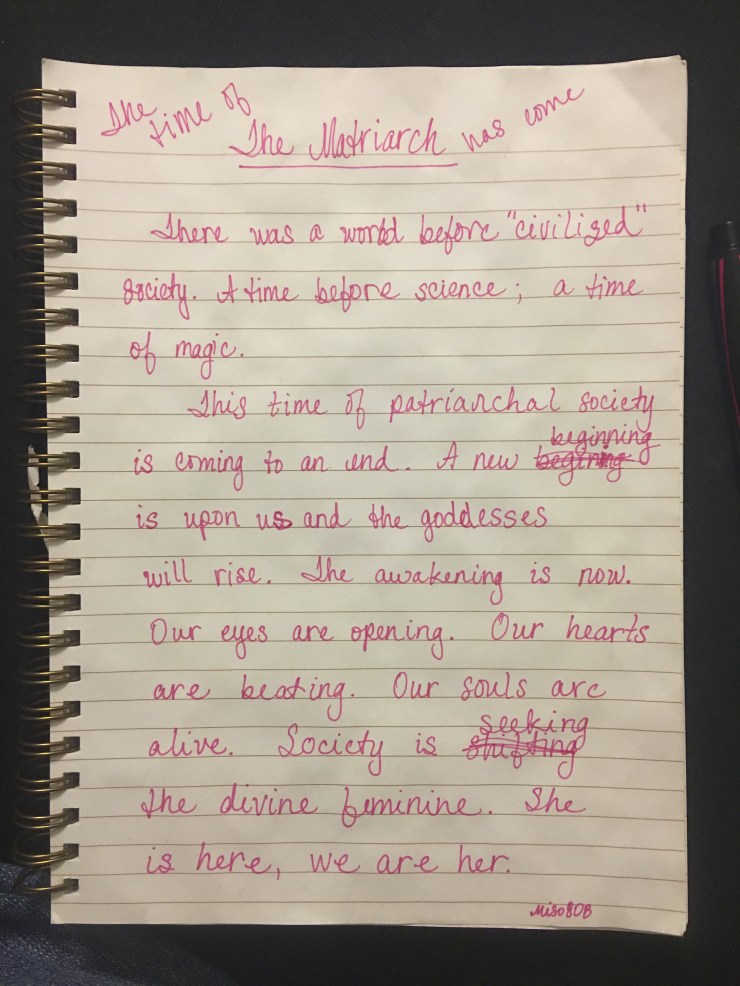 The time of The Matriarch has come
There was a world before "civilized"
society. A time before science; a time
of magic.
This time of patriarchal society
is coming to an end. A new begining beginning
is upon us and the goddesses
will rise. The awakening is now.
Our eyes are opening. Our hearts
are beating. Our souls are
alive. Society is shifting seeking
the divine feminine. She
is here, we are her.
Miso808